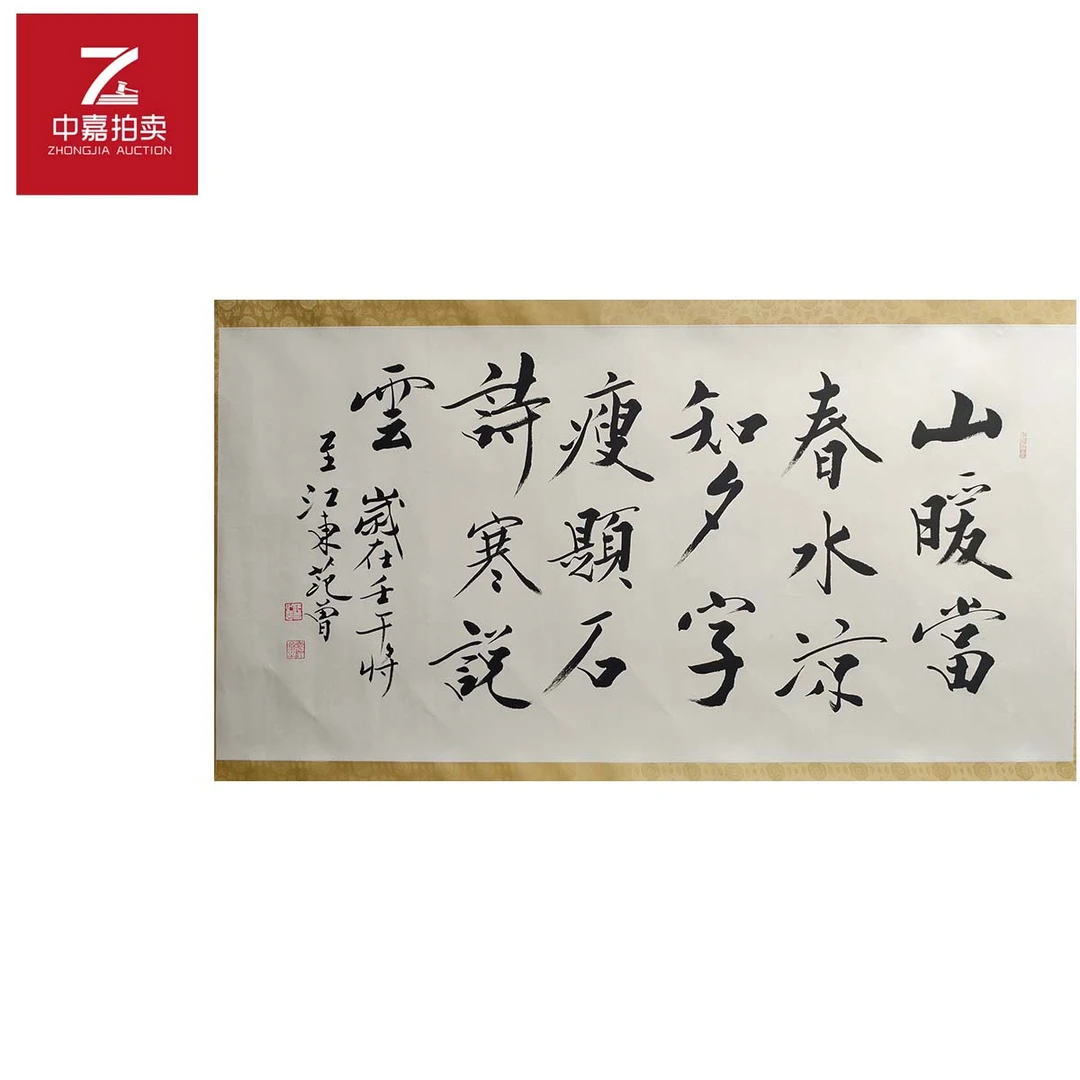 中嘉拍卖
ZHONGJIA AUCTION
山暖當
春水涼
知夕字
瘦顯石
詩寒説
雲
歲在壬午将
至江東范曾